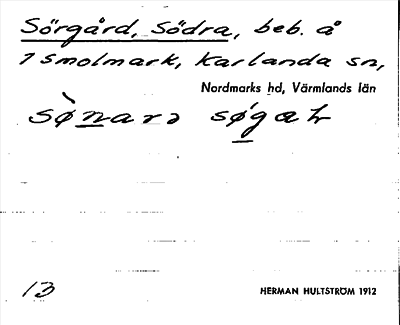 Sörgård, Södra, beb. å
1 Smolmark, Karlanda sn,
Nordmarks hd, Värmlands län
13
HERMAN HULTSTRÖM 1912